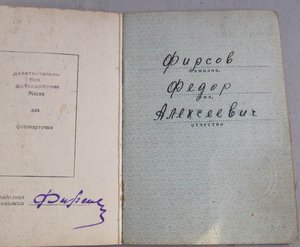 действительно
без
фотокарточки
Место
для
фотокарточки
владельца
книжки
Фирсов
Фирсов
фамилия,
Федор
имя,
Алексеевич
отчество